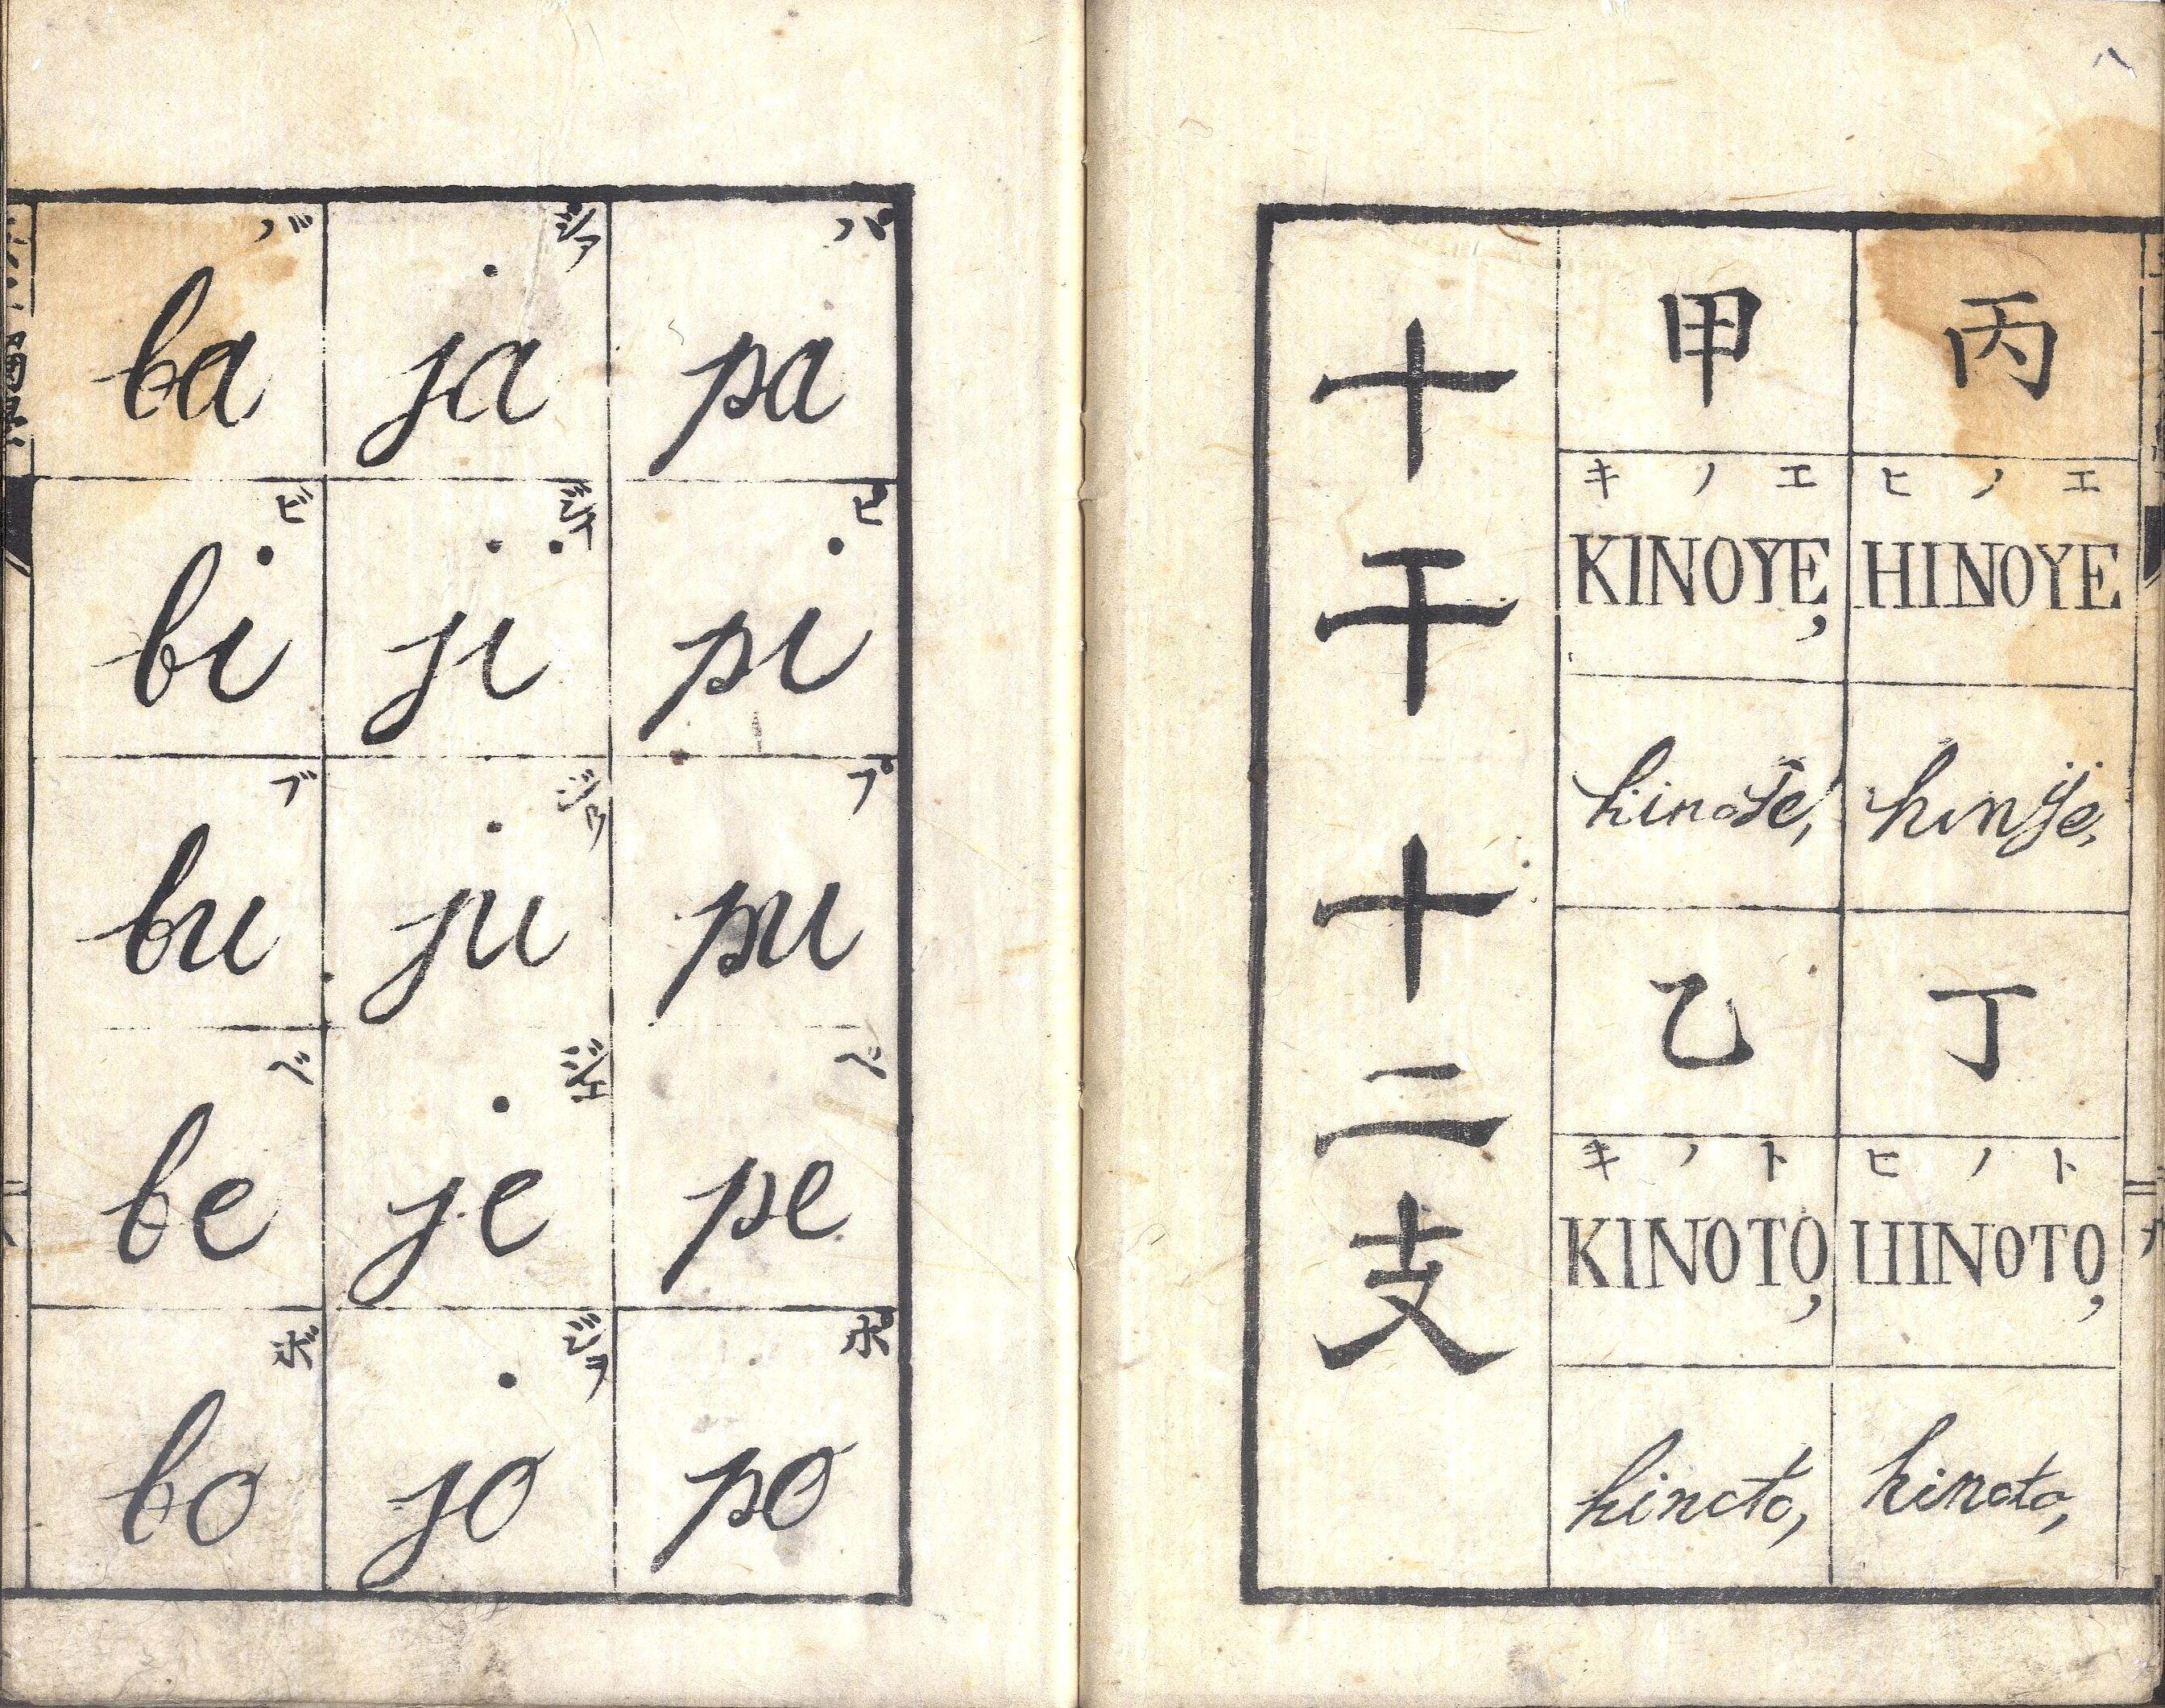 バ ジァ パ
ba ja pa
ビ ジイ ピ
bi ji pi
ブ ジウ プ
bu ju pu
ベ ジエ ペ
be je pe
ボ ジヲ ポ
bo jo po
十干十二支
甲 丙
キノエ ヒノエ
KINOYE, HINOYE
kinoye, hinoye,
乙 丁
キノト ヒノト
KINOTO, HINOTO,
kinoto, hinoto,